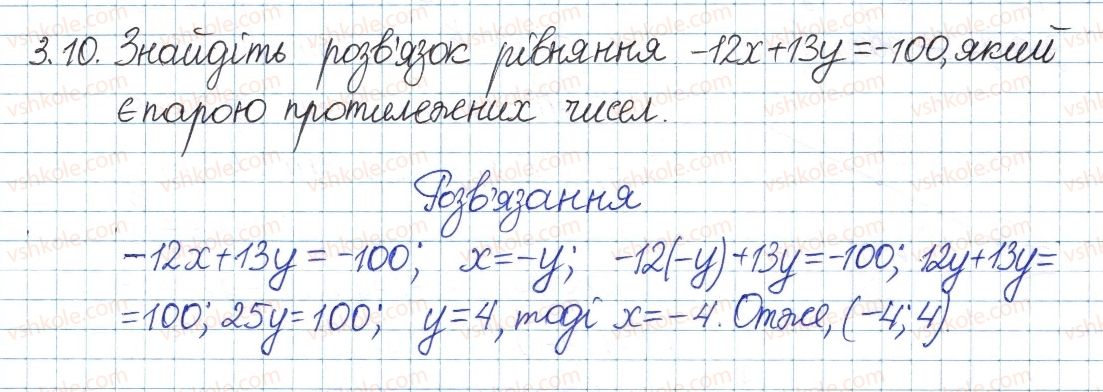 3.10. Знайдіть розв'язок рівняння -12x+13y=-100, який
є парою протилежних чисел.
Розв'язання
-12x+13y=-100; x=-y; -12(-y)+13y=-100; 12y+13y=
=100; 25y=100; y=4, тоді x=-4. Отже, (-4; 4).